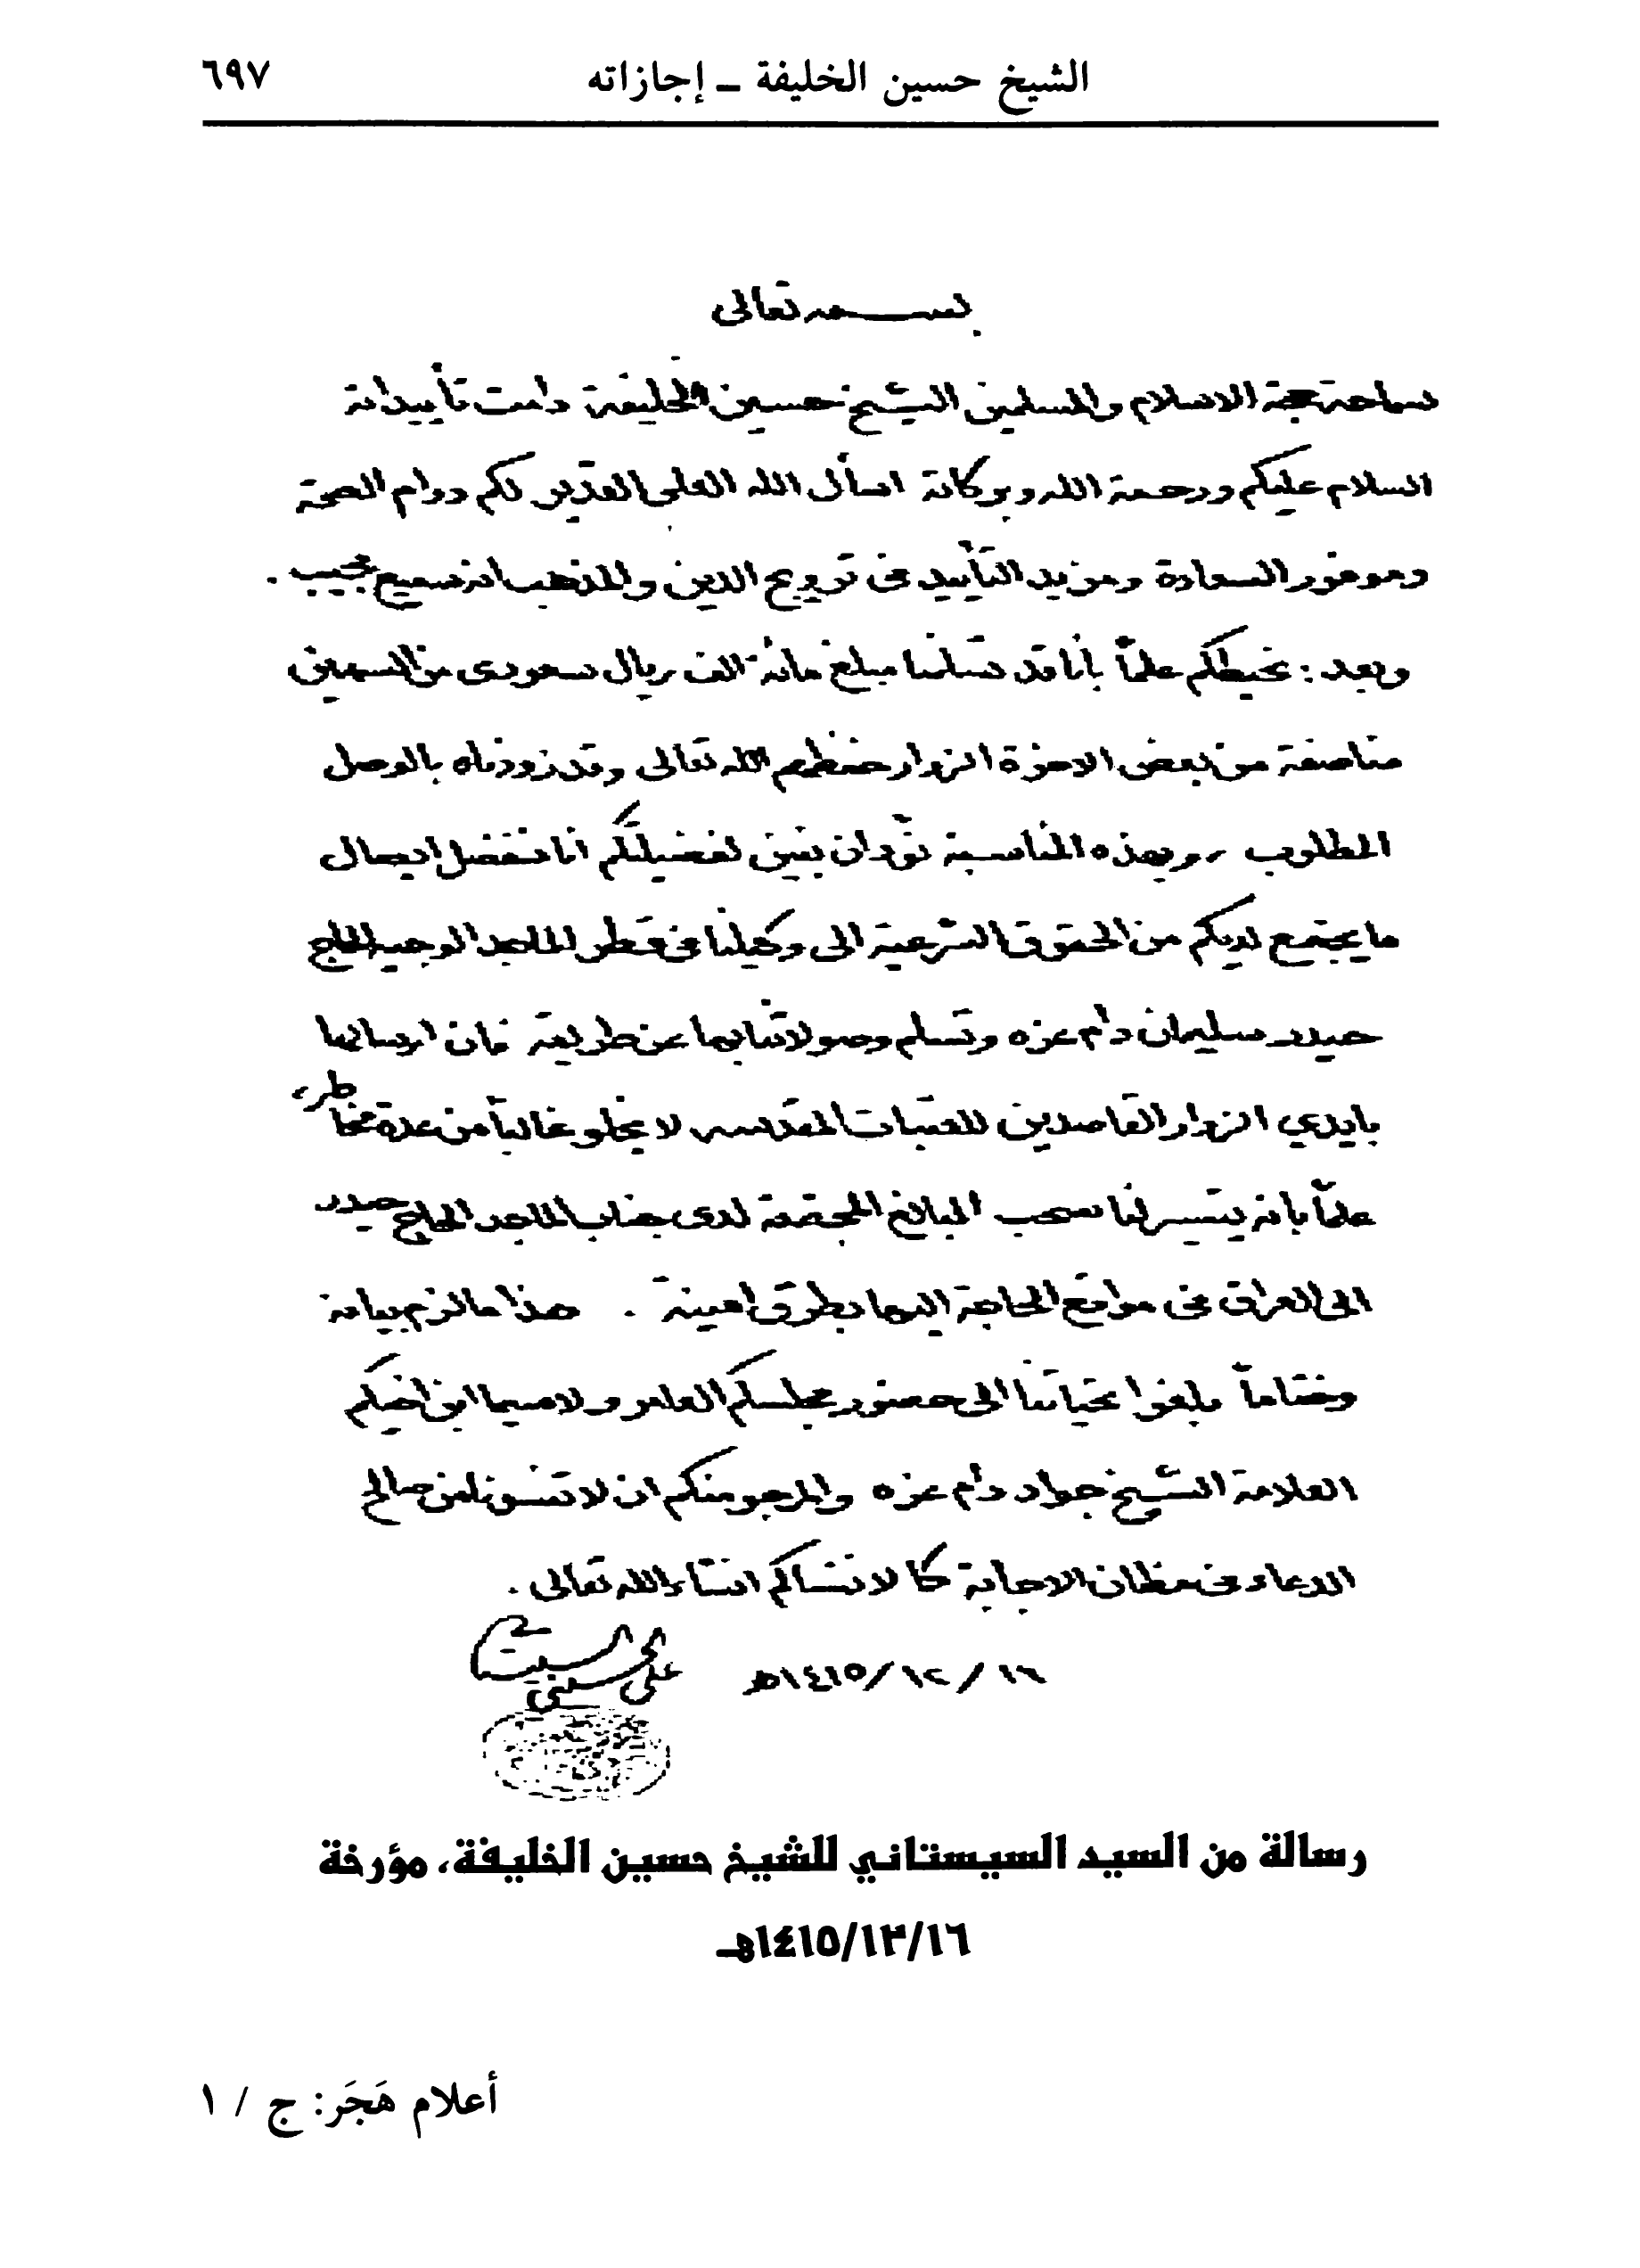 الشيخ حسين الخليفة ــ إجازاته
٦٩٧
بسمه تعالى
سماحة حجة الاسلام والمسلمين الشيخ حسين الخليفة دامت تأييداته
السلام عليكم ورحمة الله وبركاته اسأل الله العلي القدير لكم دوام الصحة
وموفور السعادة ومزيد التأييد في ترويج الدين والمذهب انه سميع مجيب .
وبعد : نحيطكم علماً بأنا قد تسلمنا مبلغ مائة الف ريال سعودي من السهمين
مناصفة من بعض الاخوة الزوار حفظهم الله تعالى وقد زودناه بالوصل
المطلوب ، وبهذه المناسبة نودّ ان نبين لفضيلتكم انا نفضل ايصال
ما يجتمع لديكم من الحقوق الشرعية الى وكيلنا في قطر الماجد الوجيه الحاج
حيدر سليمان دام عزه وتسلم وصولاتنا بها عن طريقه فان ارسالها
بايدي الزوار القاصدين للعتبات المقدسه لا يخلو غالباً من عدة مخاطر،
علماً بانه يتيسر لنا سحب المبالغ المجتمعة لدى جناب الماجد الحاج حيدر
الى العراق في مواقع الحاجة اليها بطرق امينة . هذا ما لزم بيانه
وختاماً بلغوا تحياتنا الى حضور مجلسكم العامر ولا سيما ابن اخيكم
العلامة الشيخ جواد دام عزه والمرجو منكم ان لا تنسونا من صالح
الدعاء في مظان الاجابة كما لا ننساكم انشاء الله تعالى .
١٦ / ١٢ / ١٤١٥هـ
علي الحسيني السيستاني
رسالة من السيد السيستاني للشيخ حسين الخليفة، مؤرخة
١٤١٥/١٢/١٦هـ
أعلام هَجَر: ج / ١